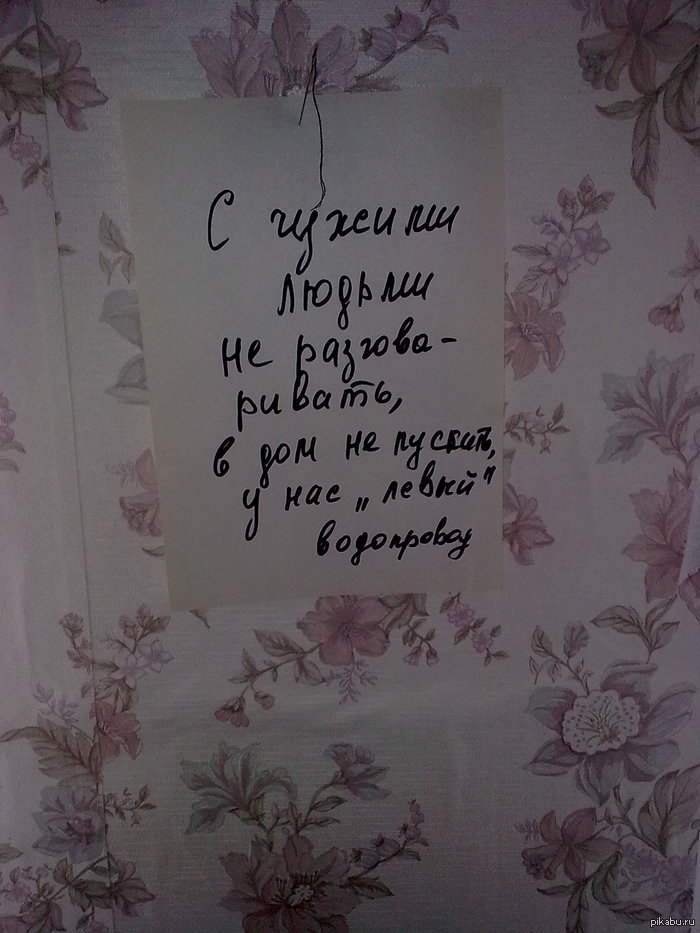 С чужими
людьми
не разгова-
ривать,
в дом не пускать,
у нас „левый"
водопровод
pikabu.ru